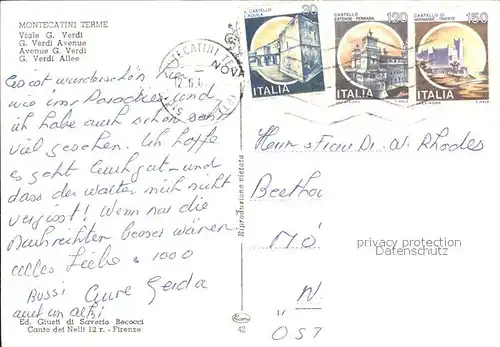 MONTECATINI TERME
Viale G. Verdi
G. Verdi Avenue
Avenue G. Verdi
G. Verdi Allee
Es ist wunderschön hier
wie im Paradies und
ich habe auch schon sehr
viel gesehen. Ich hoffe
es geht Euch gut - und
dass der Walter mich nicht
vergisst! Wenn nur die
Nachrichten besser wären
Alles Liebe & 1000
Bussi Eure Gerda
auch an
Ed. Giusti di Saverio Becocci
Canto dei Nelli 12 r. - Firenze
Riproduzione vietata
42
CASTELLO
L'AQUILA
ITALIA
CASTELLO
ESTENSE - FERRARA
120
ITALIA
CASTELLO DI
MIRAMARE - TRIESTE
150
ITALIA
Dr. W. Rhodes
Beetho
MÖ
N
ÖST
privacy protection
Datenschutz